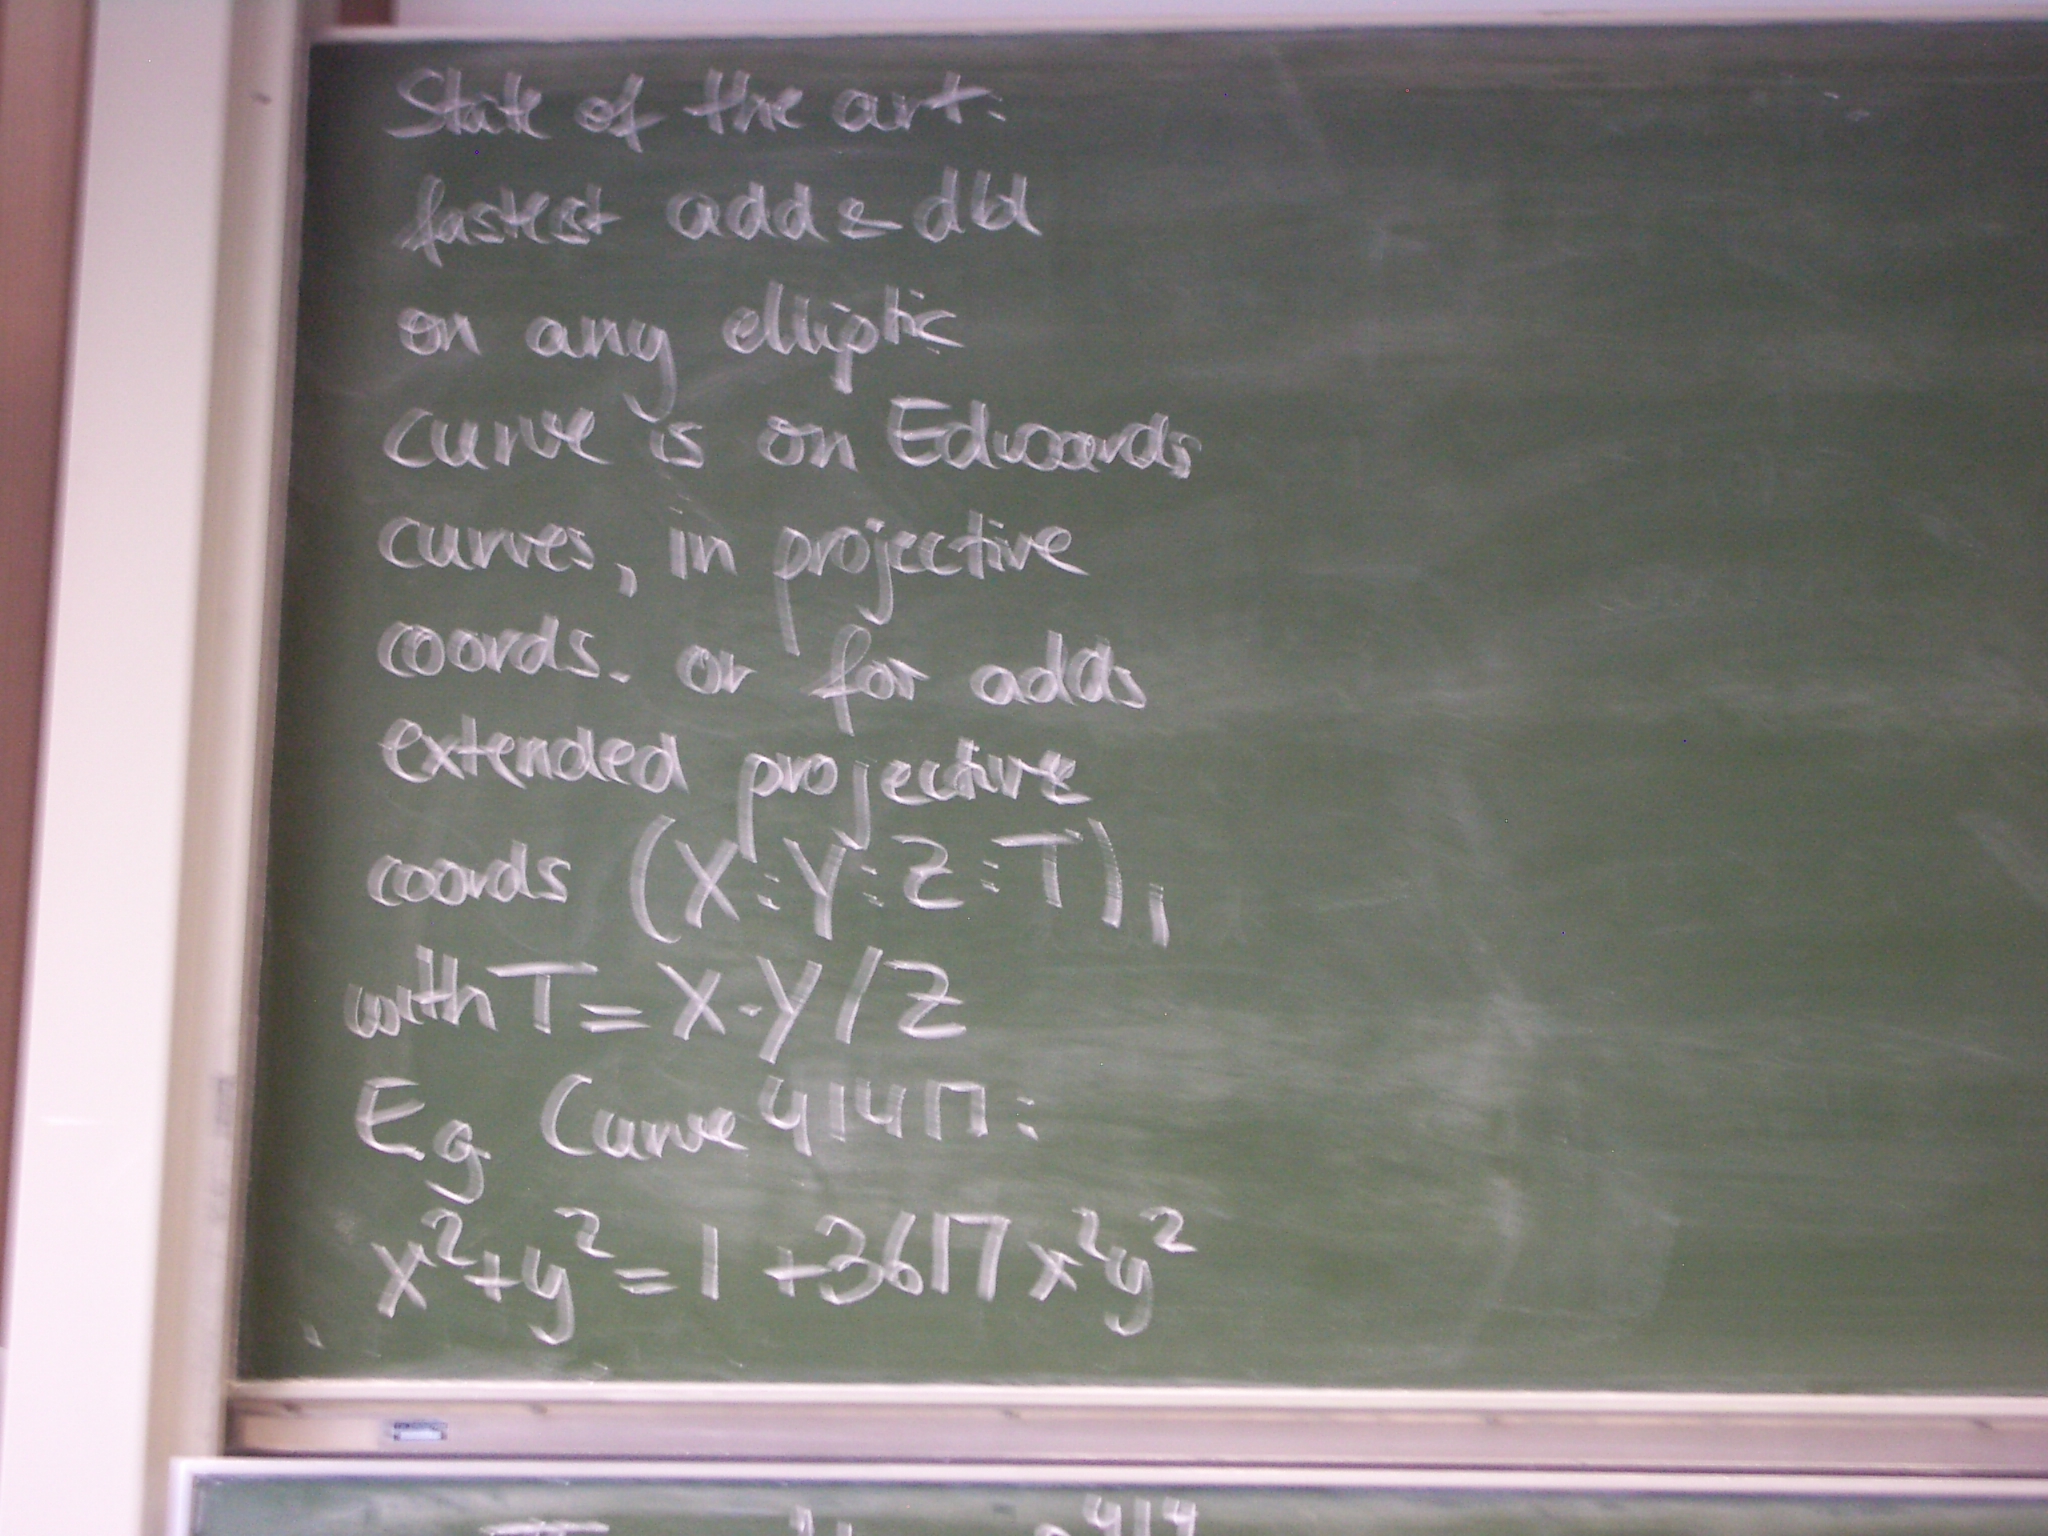 State of the art:
fastest add & dbl
on any elliptic
curve is on Edwards
curves, in projective
coords. or for adds
extended projective
coords (X:Y:Z:T),
with T = X·Y/Z
Eg Curve41417:
x²+y² = 1 + 3617x²y²
414